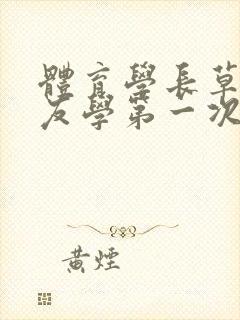 體育學長草
友學第一次
黃煙